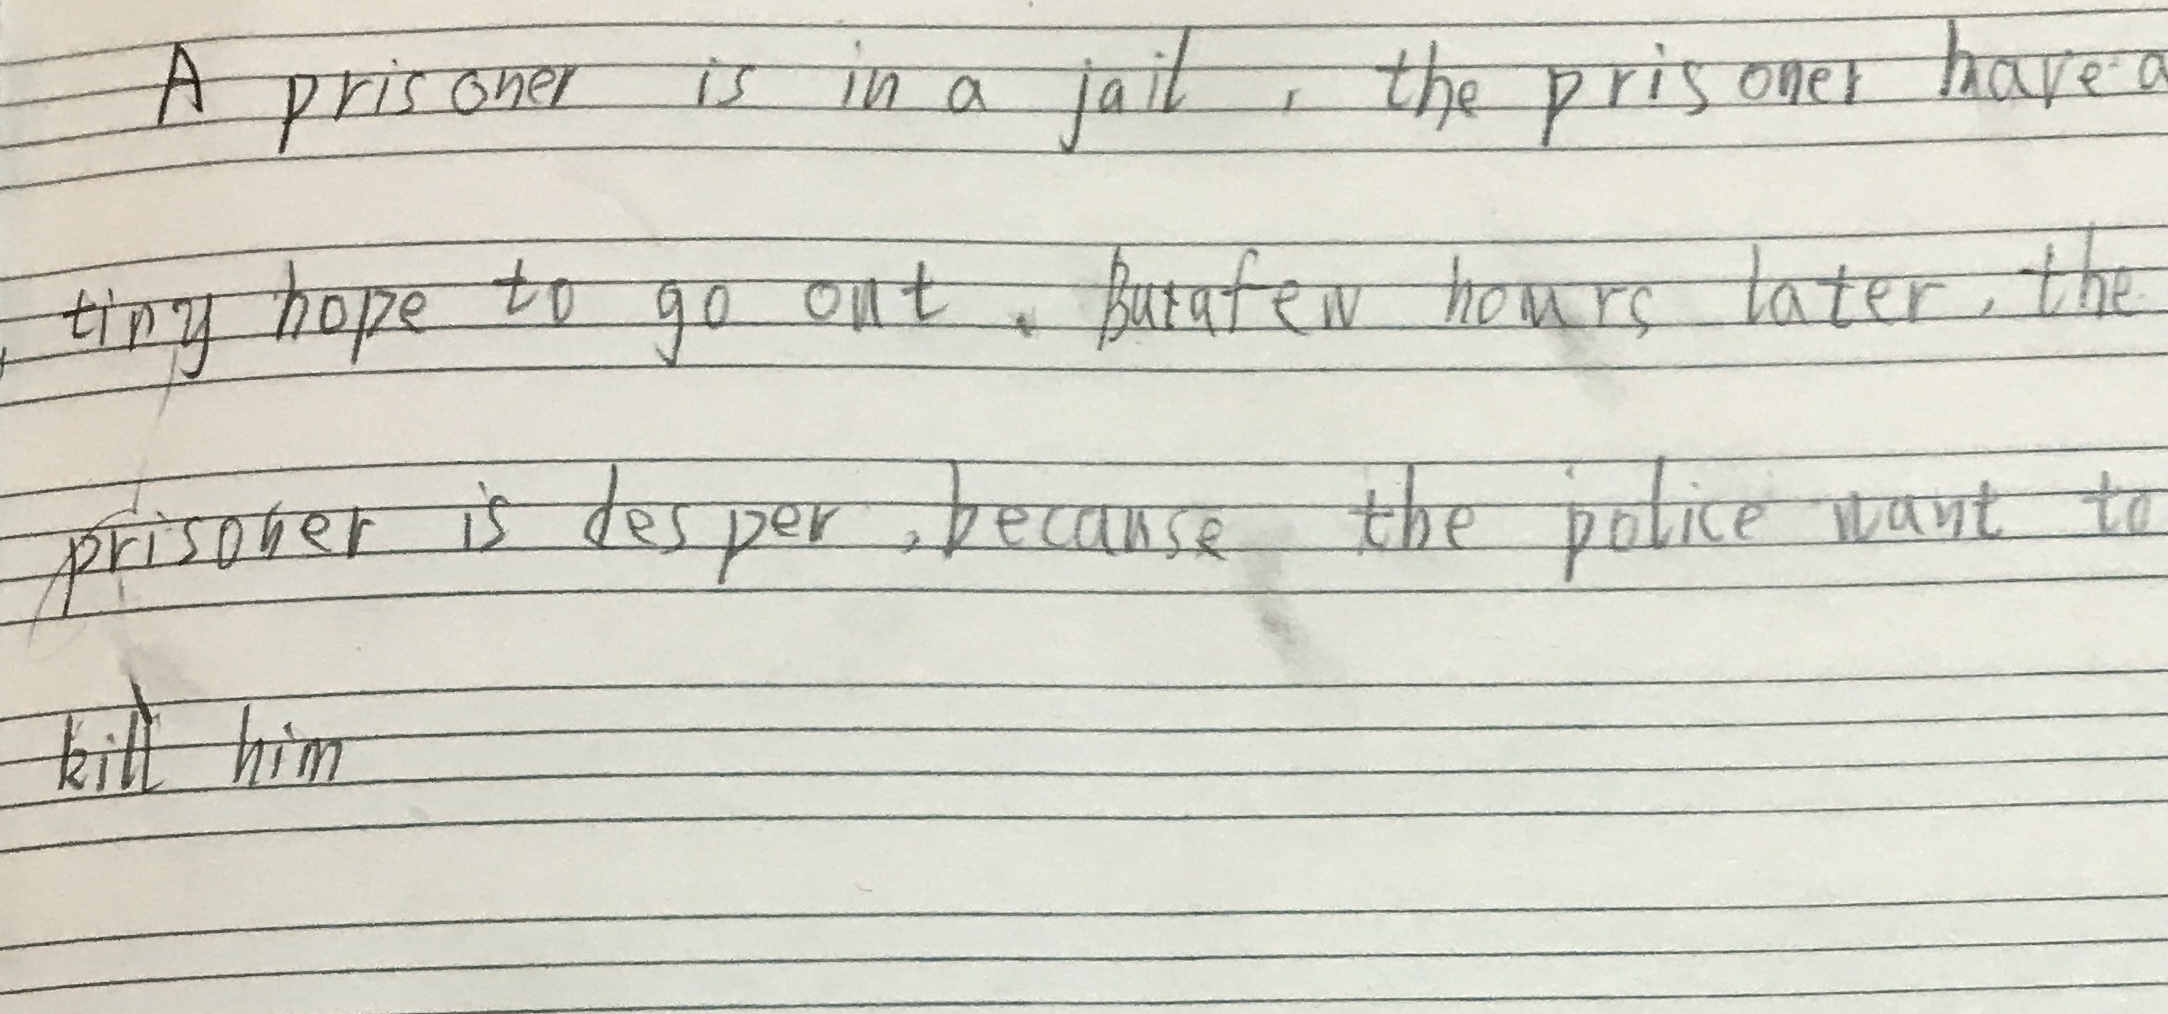 A prisoner is in a jail, the prisoner have a
tiny hope to go out. But a few hours later, the
prisoner is desper, because the police want to
kill him